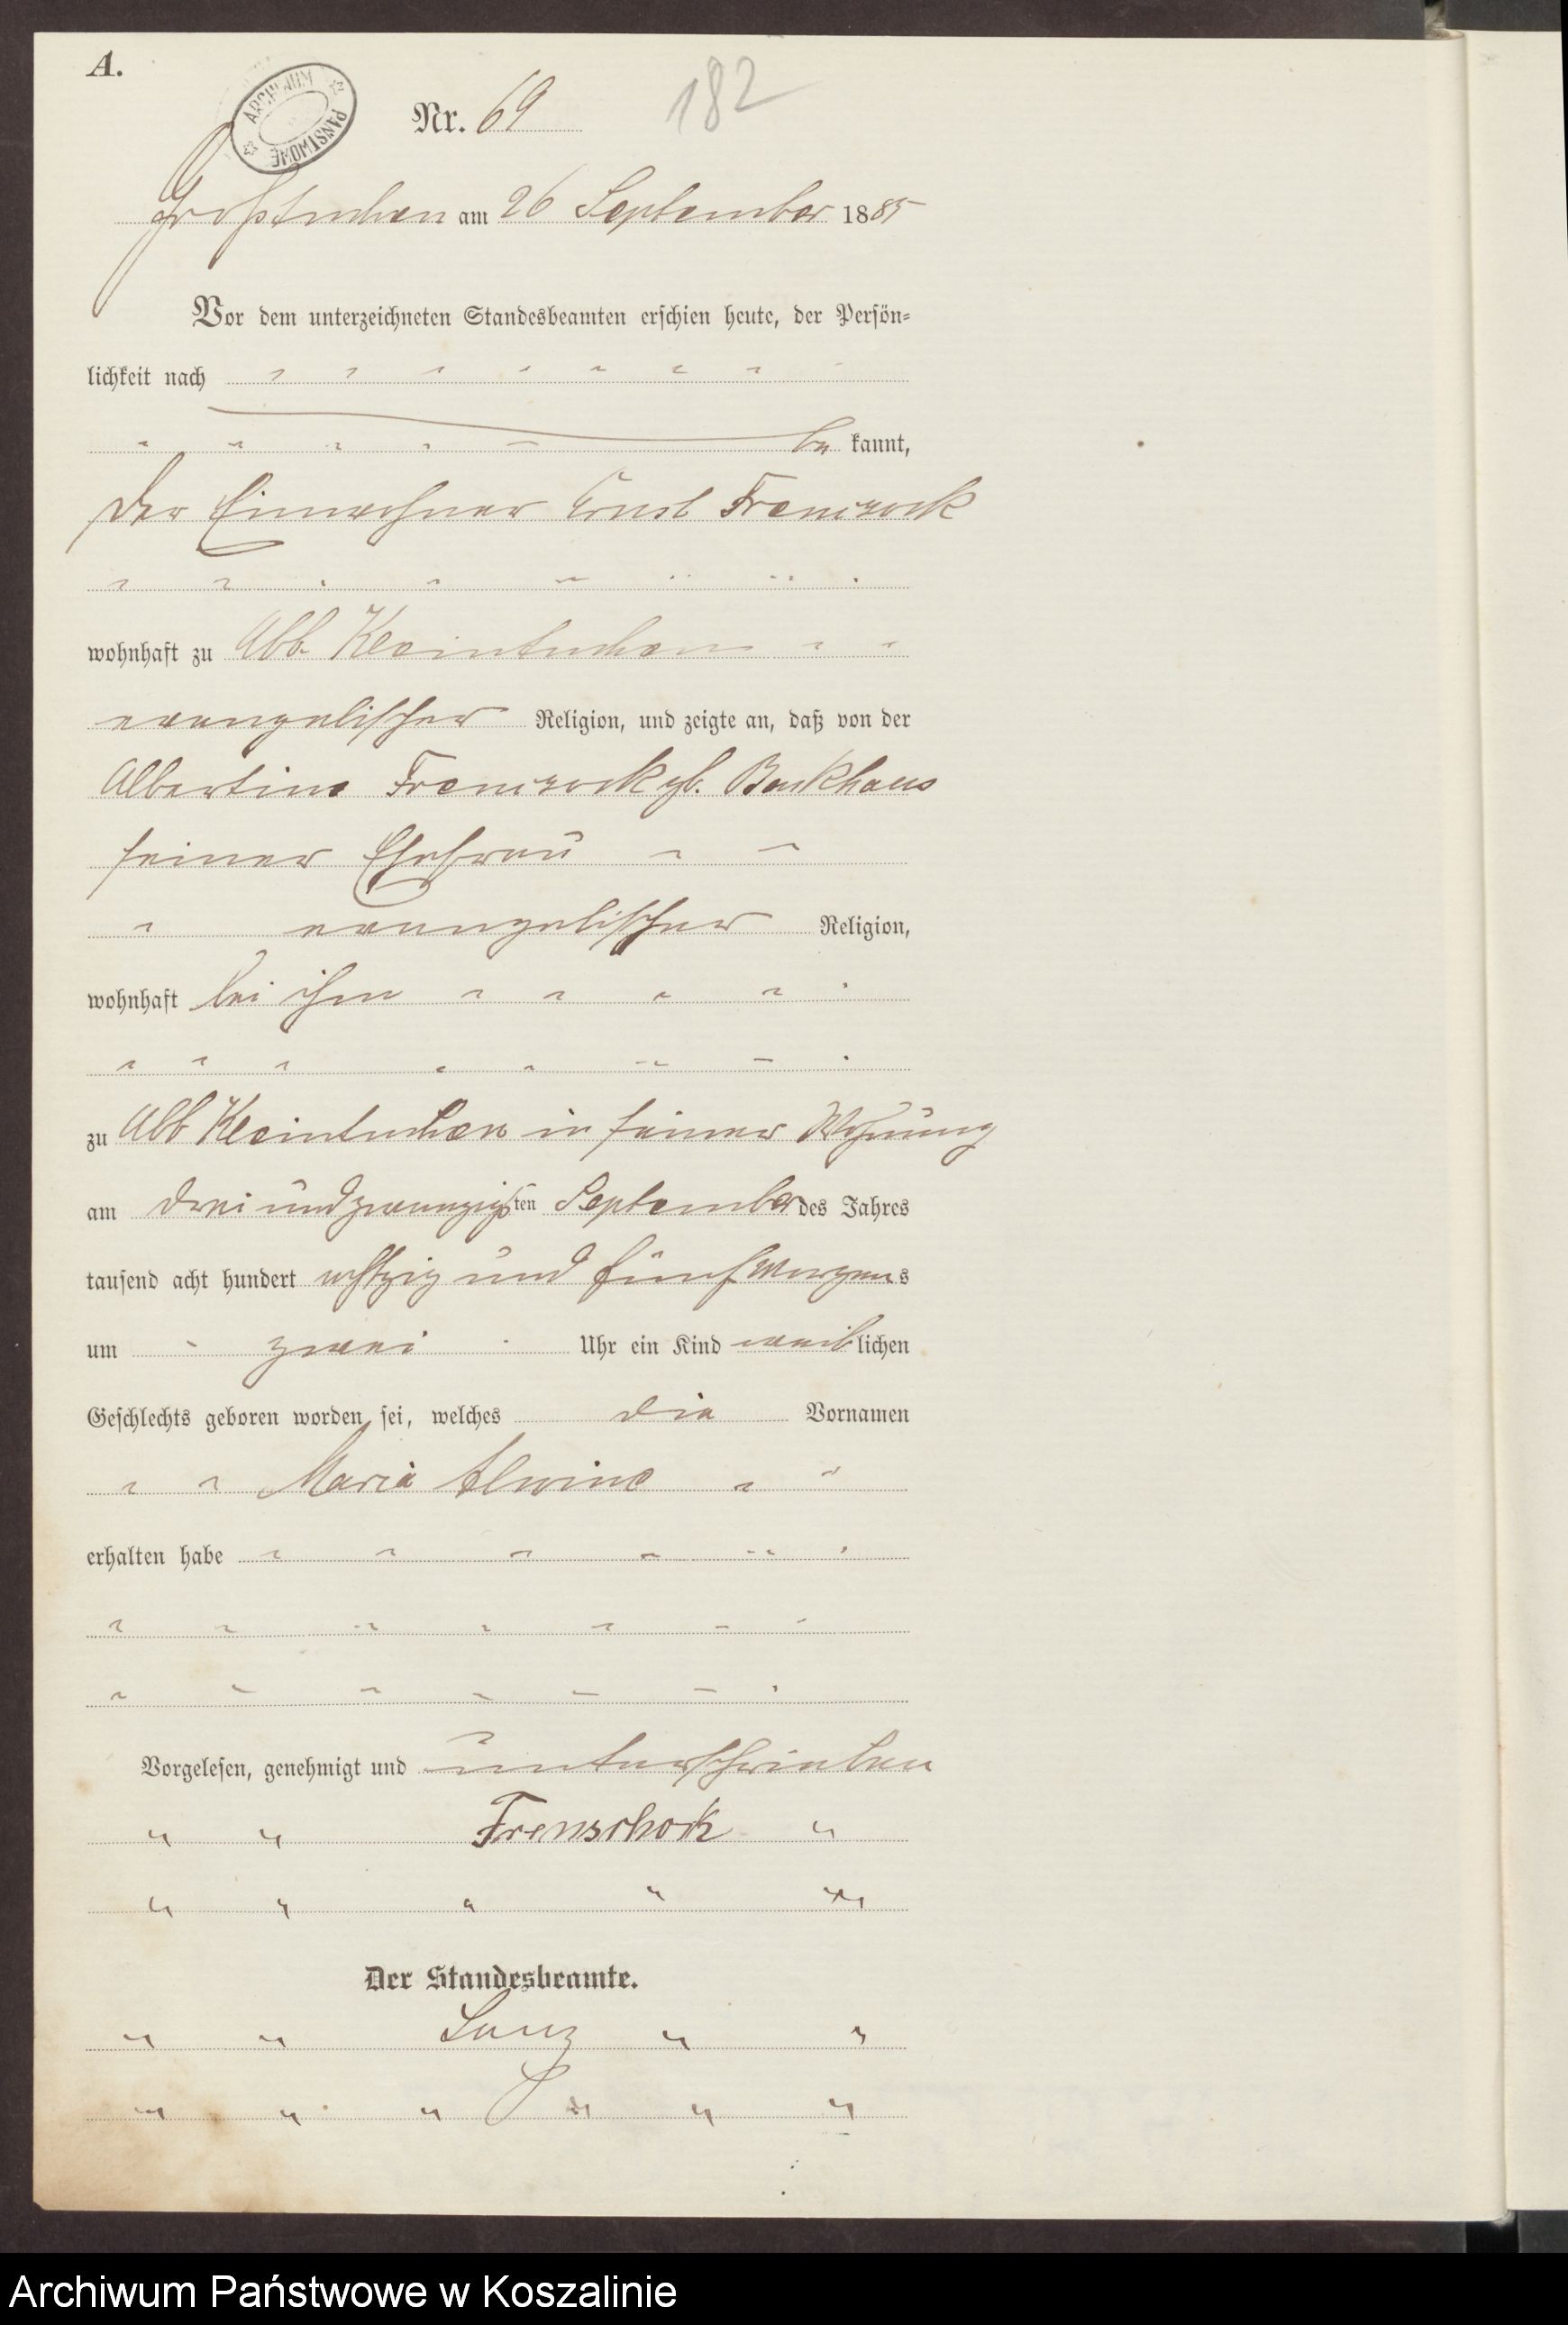 A.
ARCHIWUM PAŃSTWOWE
Nr. 69
182
Großtuchen am 26 September 1885
Vor dem unterzeichneten Standesbeamten erschien heute, der Persön-
lichkeit nach
be kannt,
der Einwohner Ernst
wohnhaft zu Abb. Kleintuchen
evangelischer Religion, und zeigte an, daß von der
Albertine geb. Backhaus
seiner Ehefrau
evangelischer Religion,
wohnhaft bei ihm
zu Abb Kleintuchen in seiner Wohnung
am drei und zwanzigsten September des Jahres
tausend acht hundert achtzig und fünf Morgens
um zwei Uhr ein Kind weiblichen
Geschlechts geboren worden sei, welches die Vornamen
Maria Alwine
erhalten habe
Vorgelesen, genehmigt und unterschrieben
Frenschock
Der Standesbeamte.
Archiwum Państwowe w Koszalinie